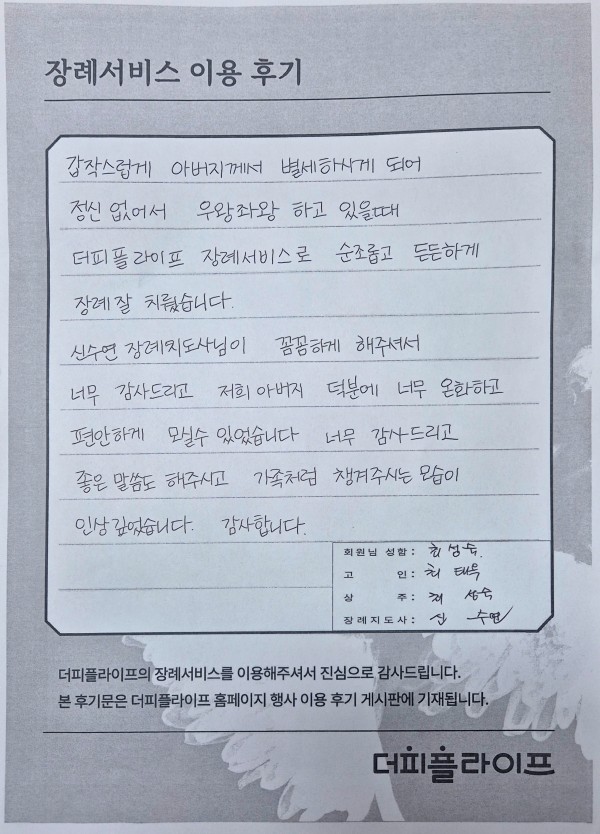 장례서비스 이용 후기
갑작스럽게 아버지께서 별세하시게 되어
정신 없어서 우왕좌왕 하고 있을때
더피플라이프 장례서비스로 순조롭고 든든하게
장례 잘 치뤘습니다.
신수연 장례지도사님이 꼼꼼하게 해주셔서
너무 감사드리고 저희 아버지 덕분에 너무 온화하고
편안하게 모실수 있었습니다 너무 감사드리고
좋은 말씀도 해주시고 가족처럼 챙겨주시는 모습이
인상 깊었습니다. 감사합니다.
회원님 성함 : 최성숙.
고 인 : 최태욱
상 주 : 최성숙
장례지도사 : 신수연
더피플라이프의 장례서비스를 이용해주셔서 진심으로 감사드립니다.
본 후기문은 더피플라이프 홈페이지 행사 이용 후기 게시판에 기재됩니다.
더피플라이프